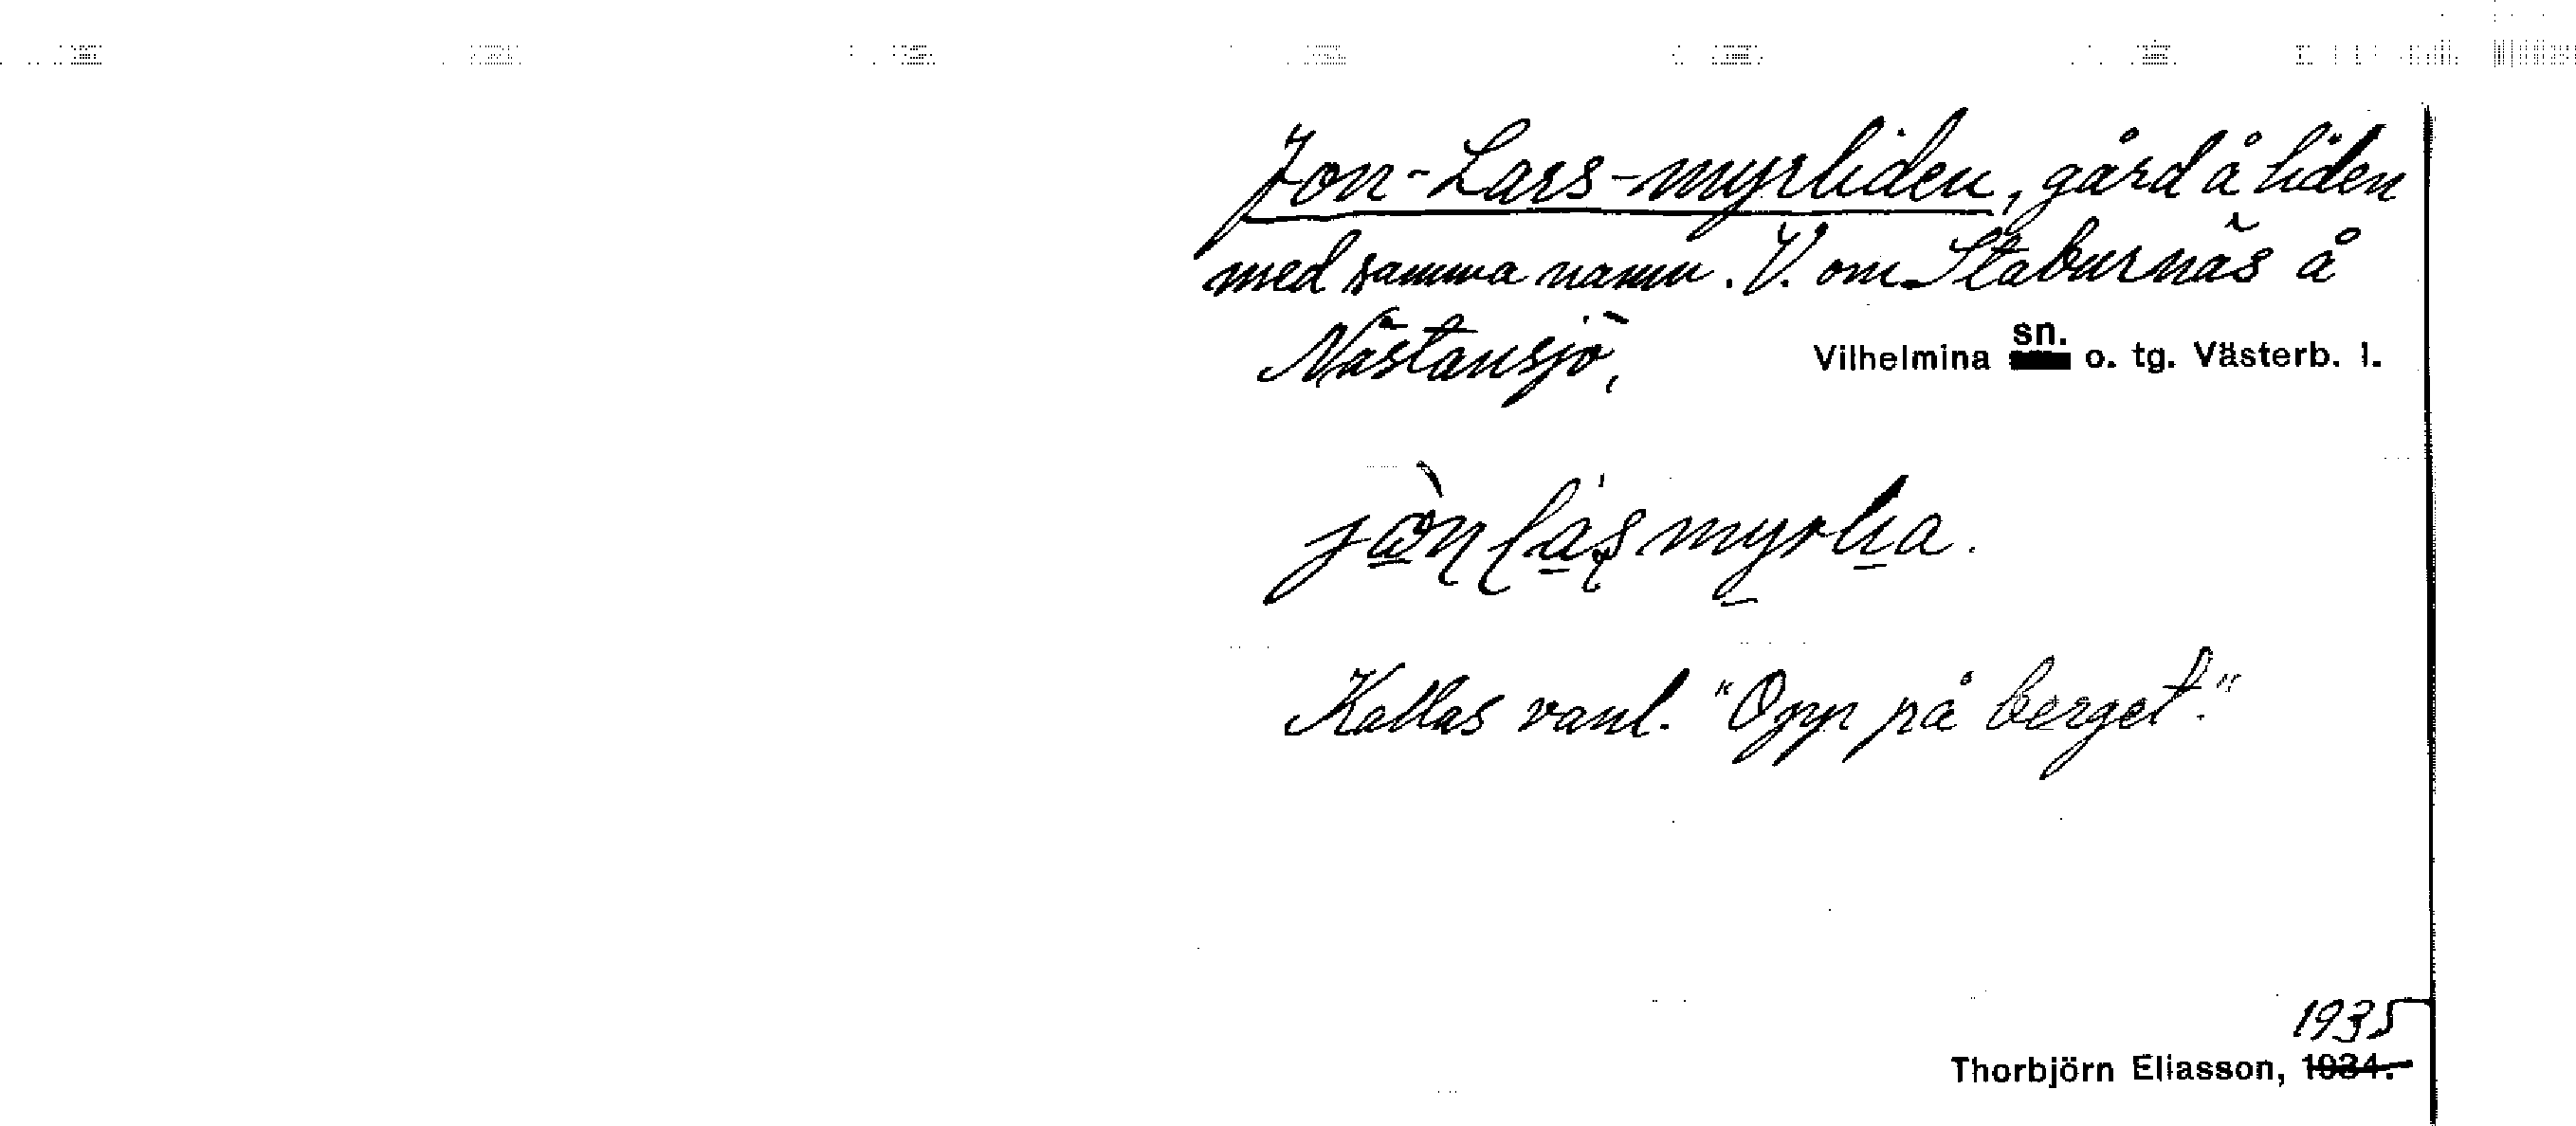 Jon-Lars-myrliden, gård å liden
med samma namn. V. om Staburnäs å
Nästansjö,
sn.
Vilhelmina o. tg. Västerb. l.
Kallas vanl. "Opp på berget."
1935
Thorbjörn Eliasson, 1934.